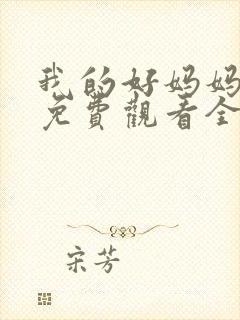 我的好妈妈
免費觀看全
宋芳